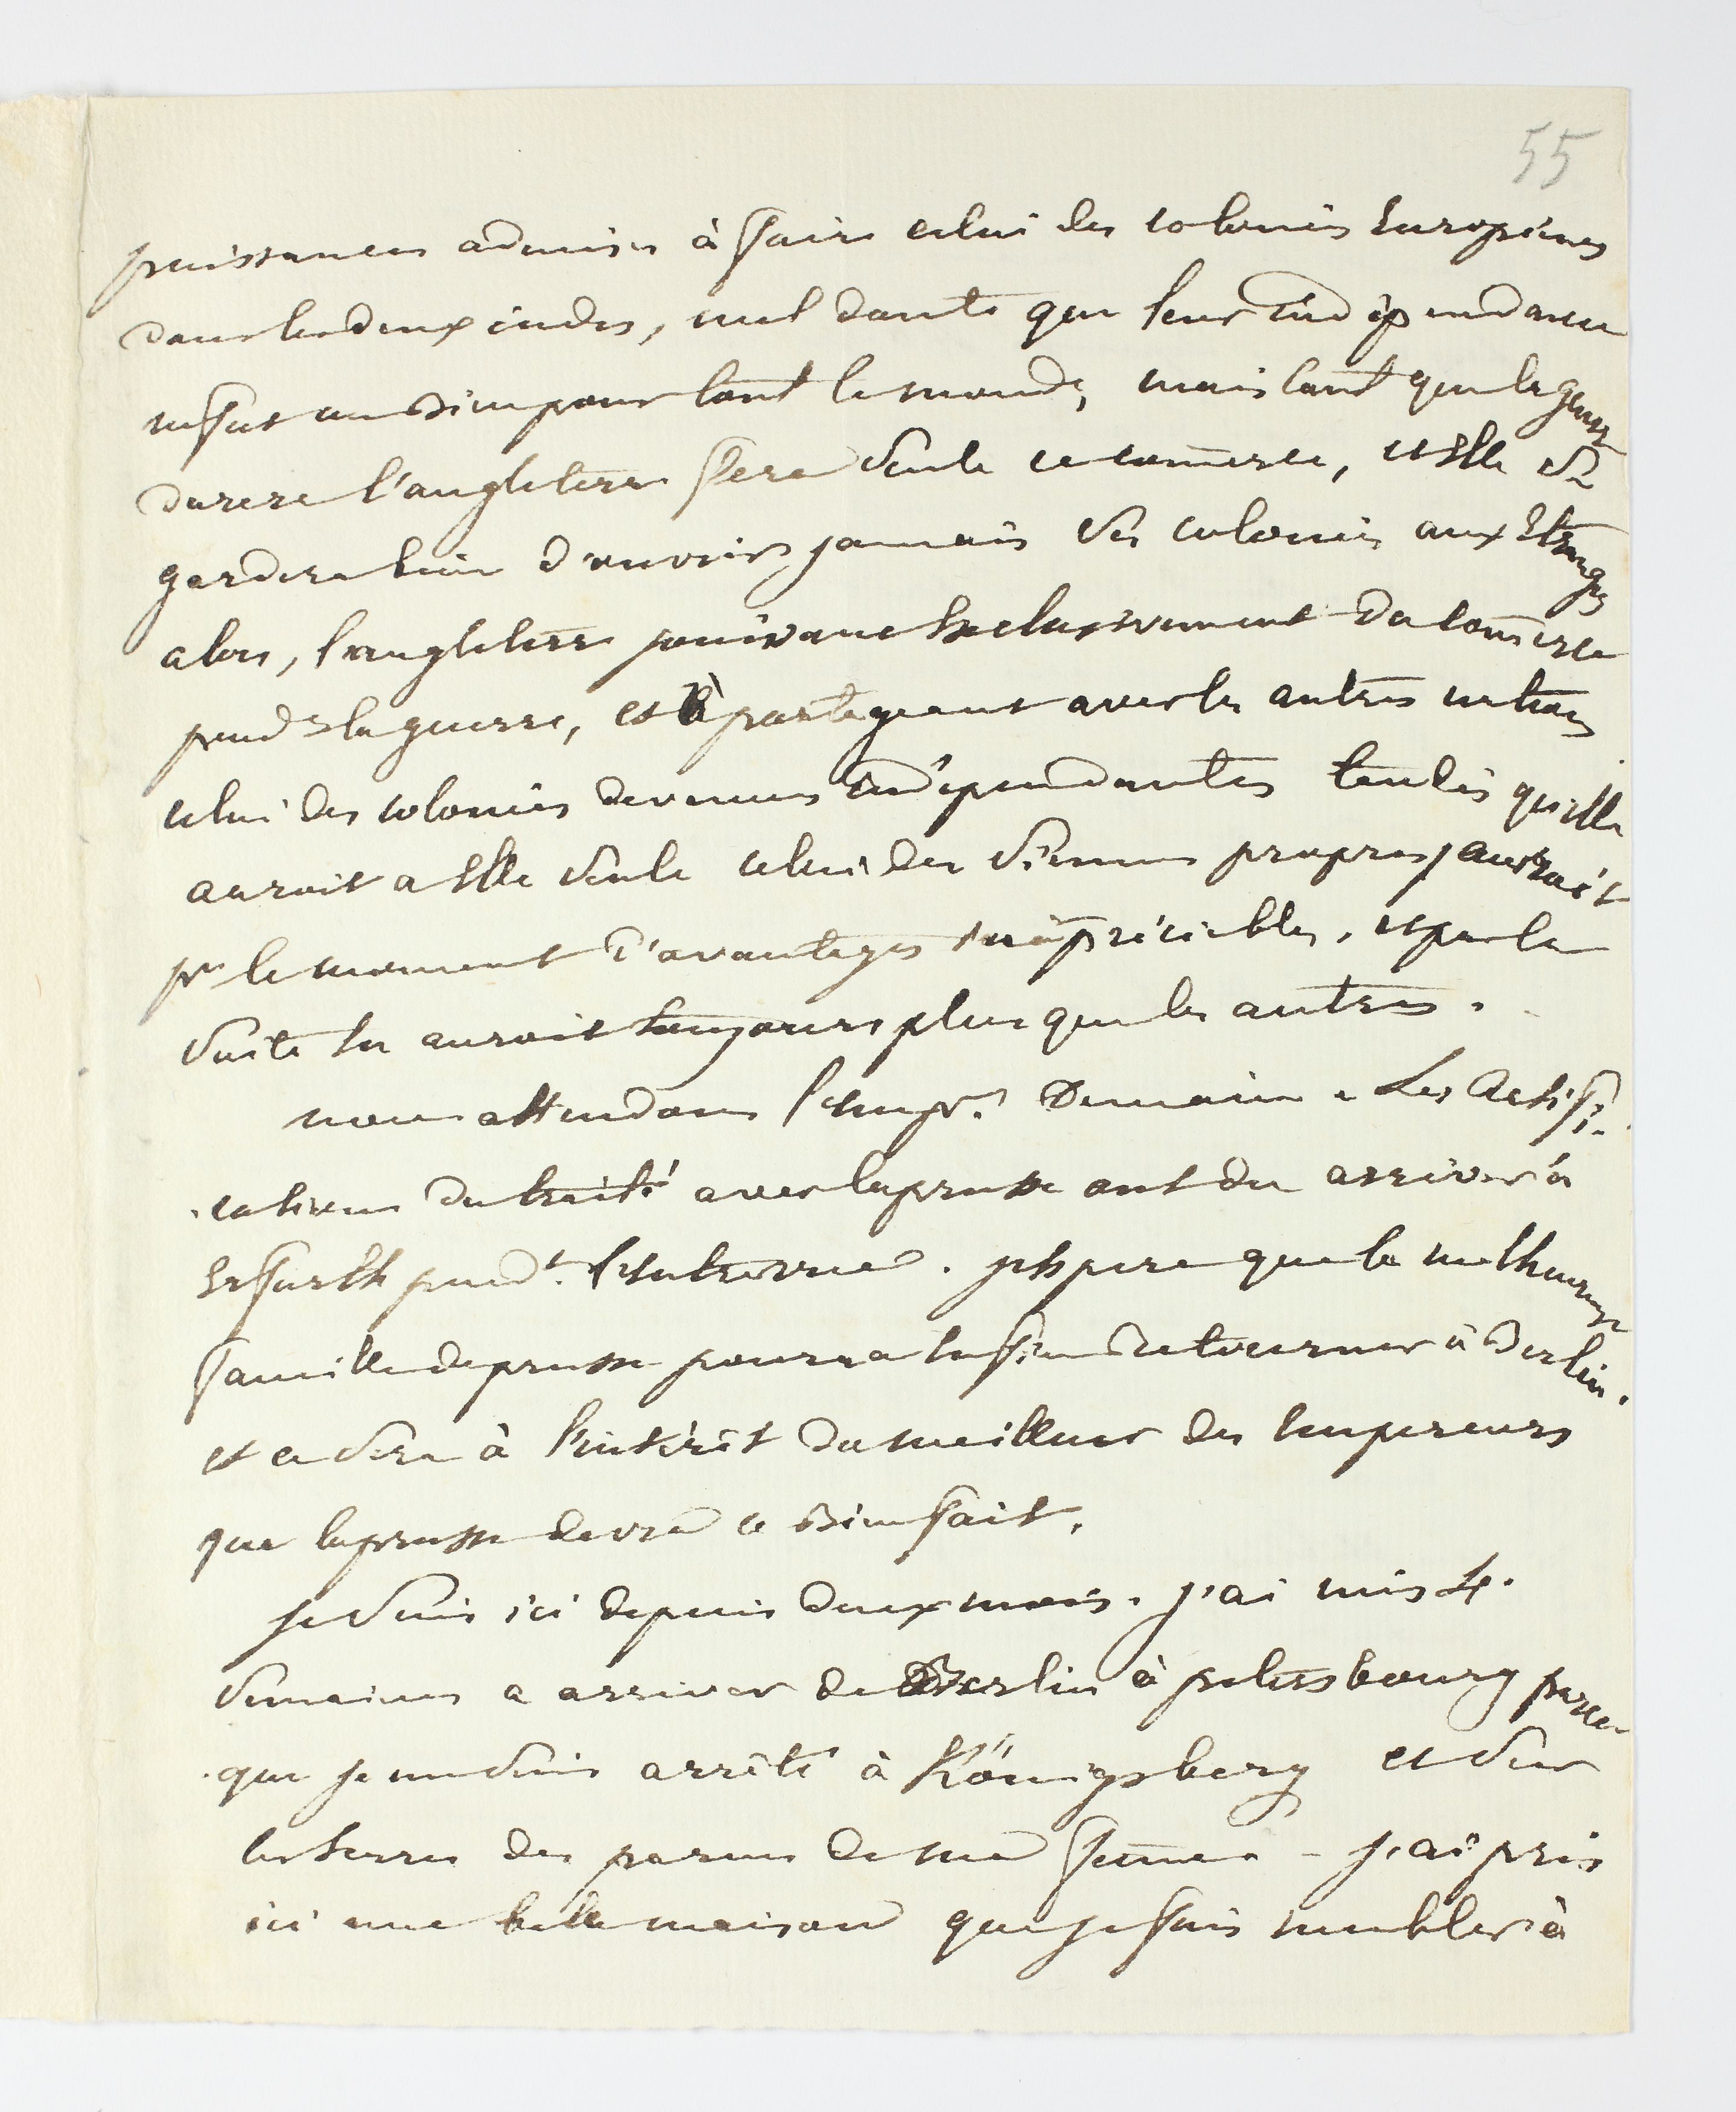 55
puissances admises à faire celui des colonies Européenes
dans les deux indes, nul doute que leur indépendance
ne fut un bien pour tout le monde, mais tant que la guerre
durera l'angleterre fera seule ce comerce, et Elle se
gardera bien d'ouvrir jamais ses colonies aux Etrangers
alors, l'angleterre jouissant Exclusivement du comerce
pendt la guerre, et partageant avec les autres nations
celui des colonies devenues indépendantes tandis qu'elle
auroit a Elle seule celui des siennes propres, auroit
pr le moment d'avantages inapréciables, et par la
suite En auroit toujours plus que les autres.
nous attendons l'Empr. Demain. Les Ratifi-
cations du traité avec la prusse ont du arriver à
Erfurth pendt. l'Entrevue. j'Espere que la malheureuse
famille de prusse pourra Enfin Retourner à Berlin.
et ce sera à l'intérêt du meilleur des Empereurs
que la prusse devra ce bienfait.
je suis ici depuis deux mois. j'ai mis 4.
semaines a arriver de Berlin à petersbourg parce
que je me suis arrêté à Königsberg et sur
les terres des parens de ma feme. - j'ai pris
ici une belle maison que je fais meubler à